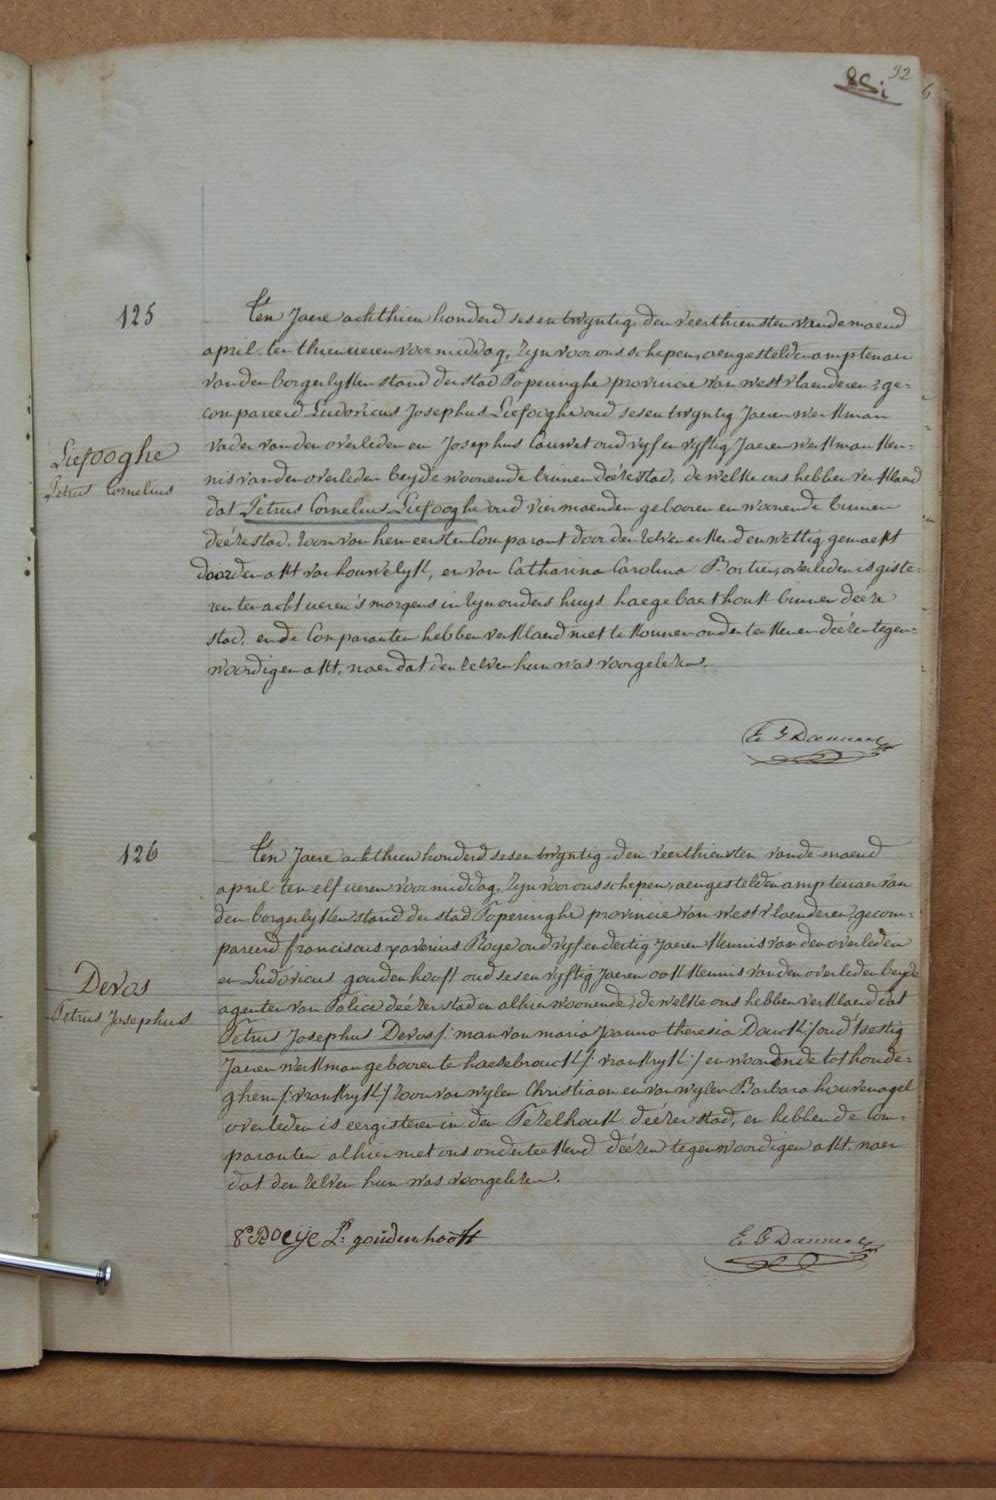 92
85i
6
125
Ten Jaere achthien honderd sesentwyntig, den veerthiensten vande maend
april, ten thien ueren voormiddag, Zyn voor ons schepen, aengestelden amptenaer
van den borgerlyken stand der stad Poperinghe provincie van westvlaenderen, ge=
compareerd Ludovicus Josephus Liefooghe oud sesentwyntig Jaeren werkman
vader van den overleden en Josephus Cauwet oud vyf en vyftig Jaeren werkman ken-
Liefooghe
Petrus Cornelius
nis van den overleden beyde woonende binnen deéze stad, de welke ons hebben verklaerd
dat Petrus Cornelius Liefooghe oud vier maenden gebooren en woonende binnen
deéze stad, Zoon van hem eersten Comparant door den Zelven erkend en wettig gemaekt
door den akt van houwelyk, en van Catharina Carolina Bortier, overleden is giste-
ren ten acht ueren 's morgens in Zyn ouders huys haegebaerthouk binnen deéze
stad, en de Comparanten hebben verklaerd niet te konnen onderteekenen deézen tegen-
woordigen akt, naer dat den zelven hun was voorgelezen.
126
Ten Jaere achthien honderd sesentwyntig, den veerthiensten vande maend
april ten elf ueren voormiddag, Zyn voor ons schepen, aengestelden amptenaer van
den borgerlyken stand der stad Poperinghe provincie van westvlaenderen, gecom-
pareerd franciscus xaverius Boye oud vyf en dertig Jaeren kennis van den overleden
en Ludovicus goudenhooft oud sesen vyftig Jaeren ook kennis van den overleden beyde
Devos
Petrus Josephus
agenten van Police deézer stad en alhier woonende, de welke ons hebben verklaerd dat
Petrus Josephus Devos /: man van maria Joanna theresia Douck :/ oud t'sestig
Jaeren werkman gebooren te haesebrouck /: vrankryk :/ en woonende tot honde=
ghem /: vrankryk :/ Zoon van wylen Christiaen en van wylen Barbara houvenagel
overleden is eergisteren in den Pezelhouk deézer stad, en hebben de Com-
paranten alhier met ons onderteekend deézen tegenwoordigen akt, naer
dat den zelven hun was voorgelezen.
Boeije L: goudenhooft